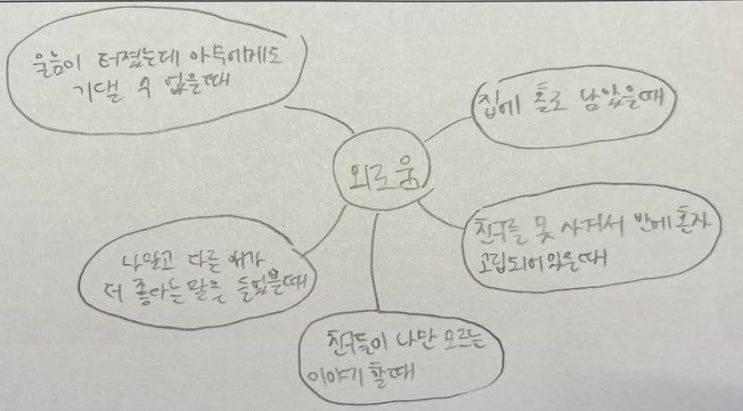 울음이 터졌는데 아무에게도
기댈 수 없을때
집에 홀로 남았을때
외로움
친구를 못 사겨서 반에 혼자
고립되어 있을때
나말고 다른 애가
더 좋다는 말을 들었을때
친구들이 나만 모르는
이야기 할때